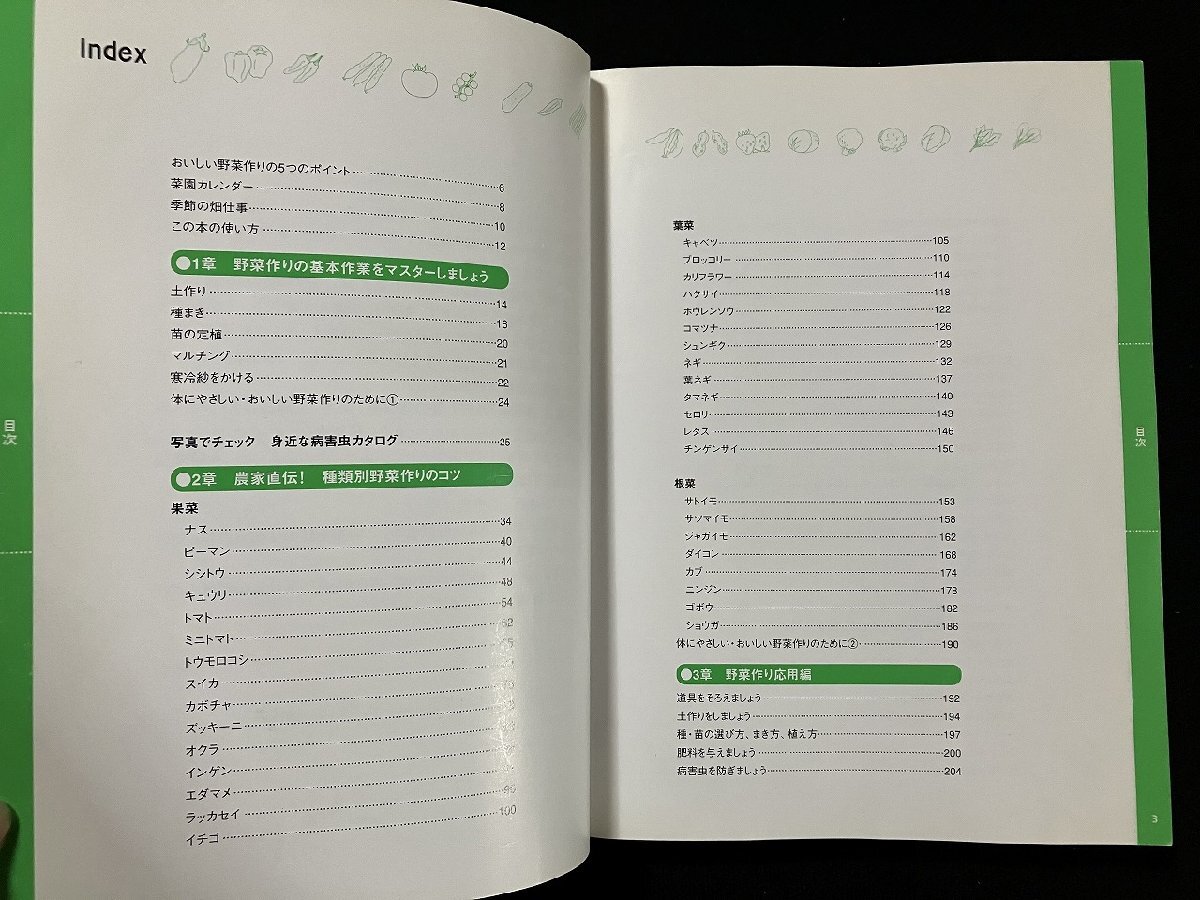 Index
おいしい野菜作りの5つのポイント 6
菜園カレンダー 8
季節の畑仕事 10
この本の使い方 12
●1章 野菜作りの基本作業をマスターしましょう
土作り 14
種まき
苗の定植 20
マルチング 21
寒冷紗をかける 22
体にやさしい・おいしい野菜作りのために① 24
写真でチェック 身近な病害虫カタログ 26
●2章 農家直伝! 種類別野菜作りのコツ
果菜
ナス 34
ピーマン 40
シシトウ 44
キュウリ 48
トマト 54
ミニトマト
トウモロコシ
スイカ
カボチャ
ズッキーニ
オクラ
インゲン
エダマメ
ラッカセイ
イチゴ 100
目次
葉菜
キャベツ 105
ブロッコリー 110
カリフラワー 114
ハクサイ 118
ホウレンソウ 122
コマツナ 126
シュンギク 129
ネギ 132
葉ネギ 137
タマネギ 140
セロリ 143
レタス 146
チンゲンサイ 150
根菜
サトイモ 153
サツマイモ 158
ジャガイモ 162
ダイコン 168
カブ 174
ニンジン 178
ゴボウ 182
ショウガ 186
体にやさしい・おいしい野菜作りのために② 190
●3章 野菜作り応用編
道具をそろえましょう 192
土作りをしましょう 194
種・苗の選び方、まき方、植え方 197
肥料を与えましょう 200
病害虫を防ぎましょう 204
目次
3